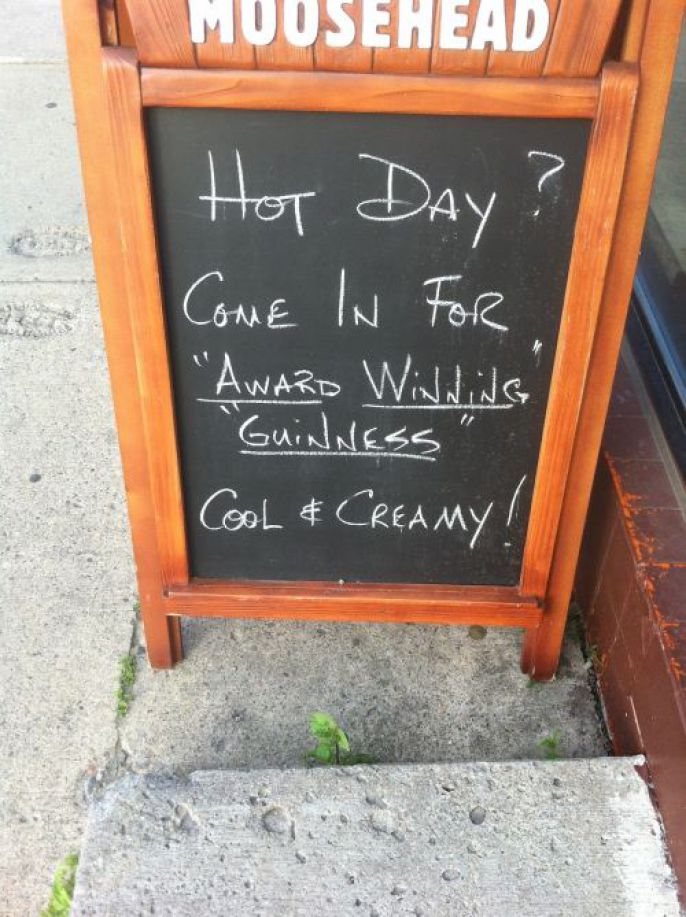 MOOSEHEAD
HOT DAY?
COME IN FOR
"AWARD WINNING"
"GUINNESS"
COOL & CREAMY!